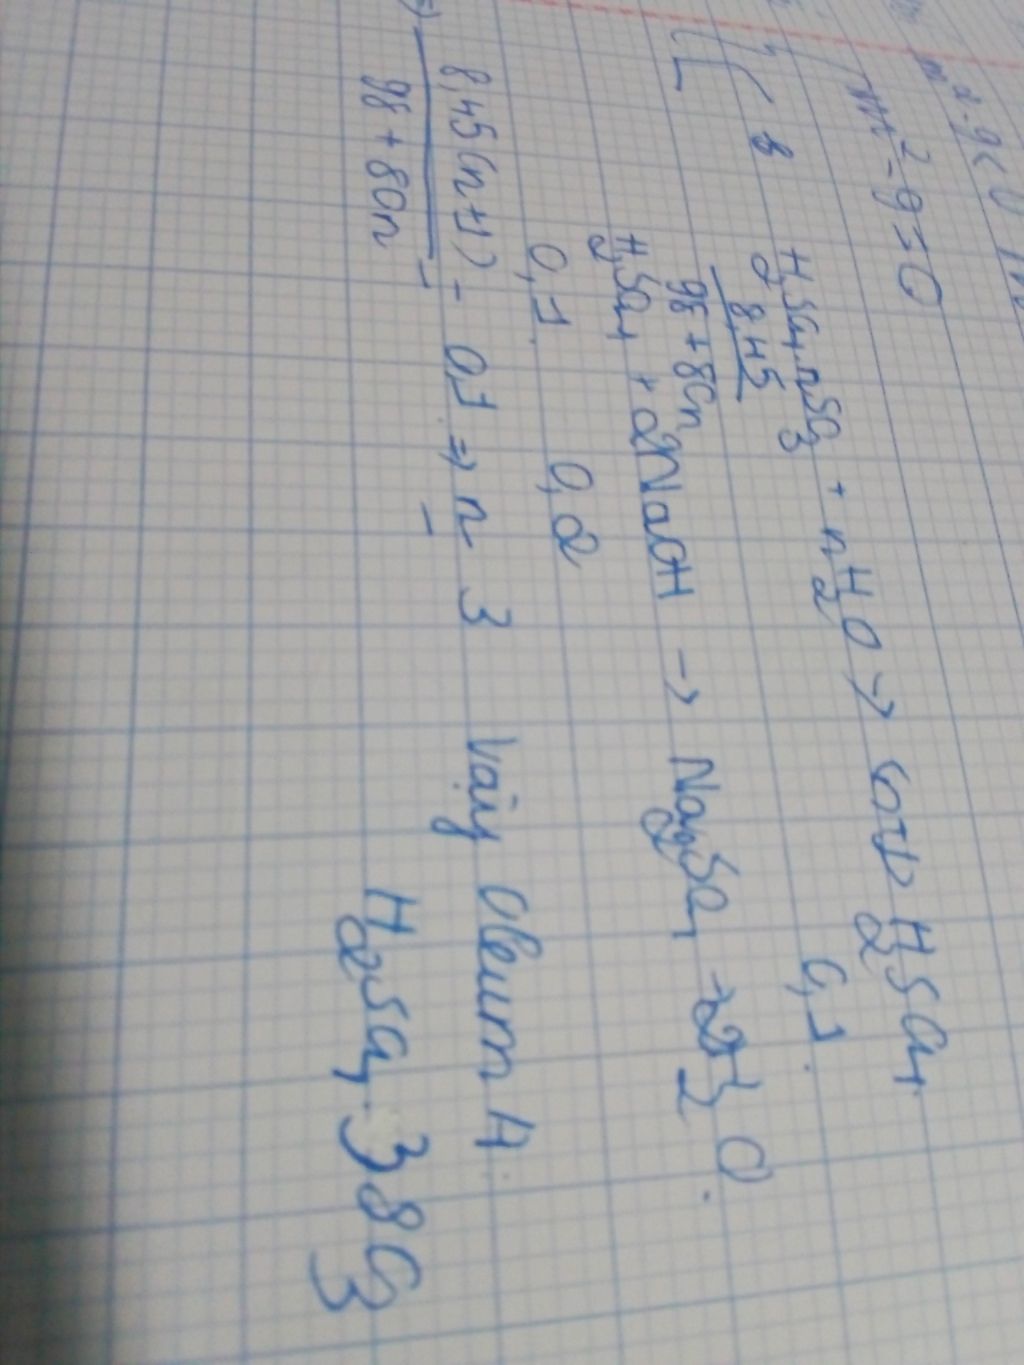 m² - 9 = 0
8
H₂SO₄.nSO₃ + nH₂O → (n+1) H₂SO₄
8,45
98 + 80n
0,1
H₂SO₄ + 2NaOH → Na₂SO₄ + 2H₂O
0,1 0,2
8,45(n+1) = 0,1 ⇒ n = 3 Vậy Oleum A
98 + 80n
H₂SO₄.3SO₃